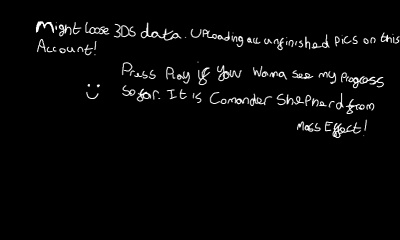 Might loose 3DS data. Uploading all unfinished pics on this
Account!
Press Play if you wanna see my progress
So far. It is Comander Shepherd from
Mass Effect!